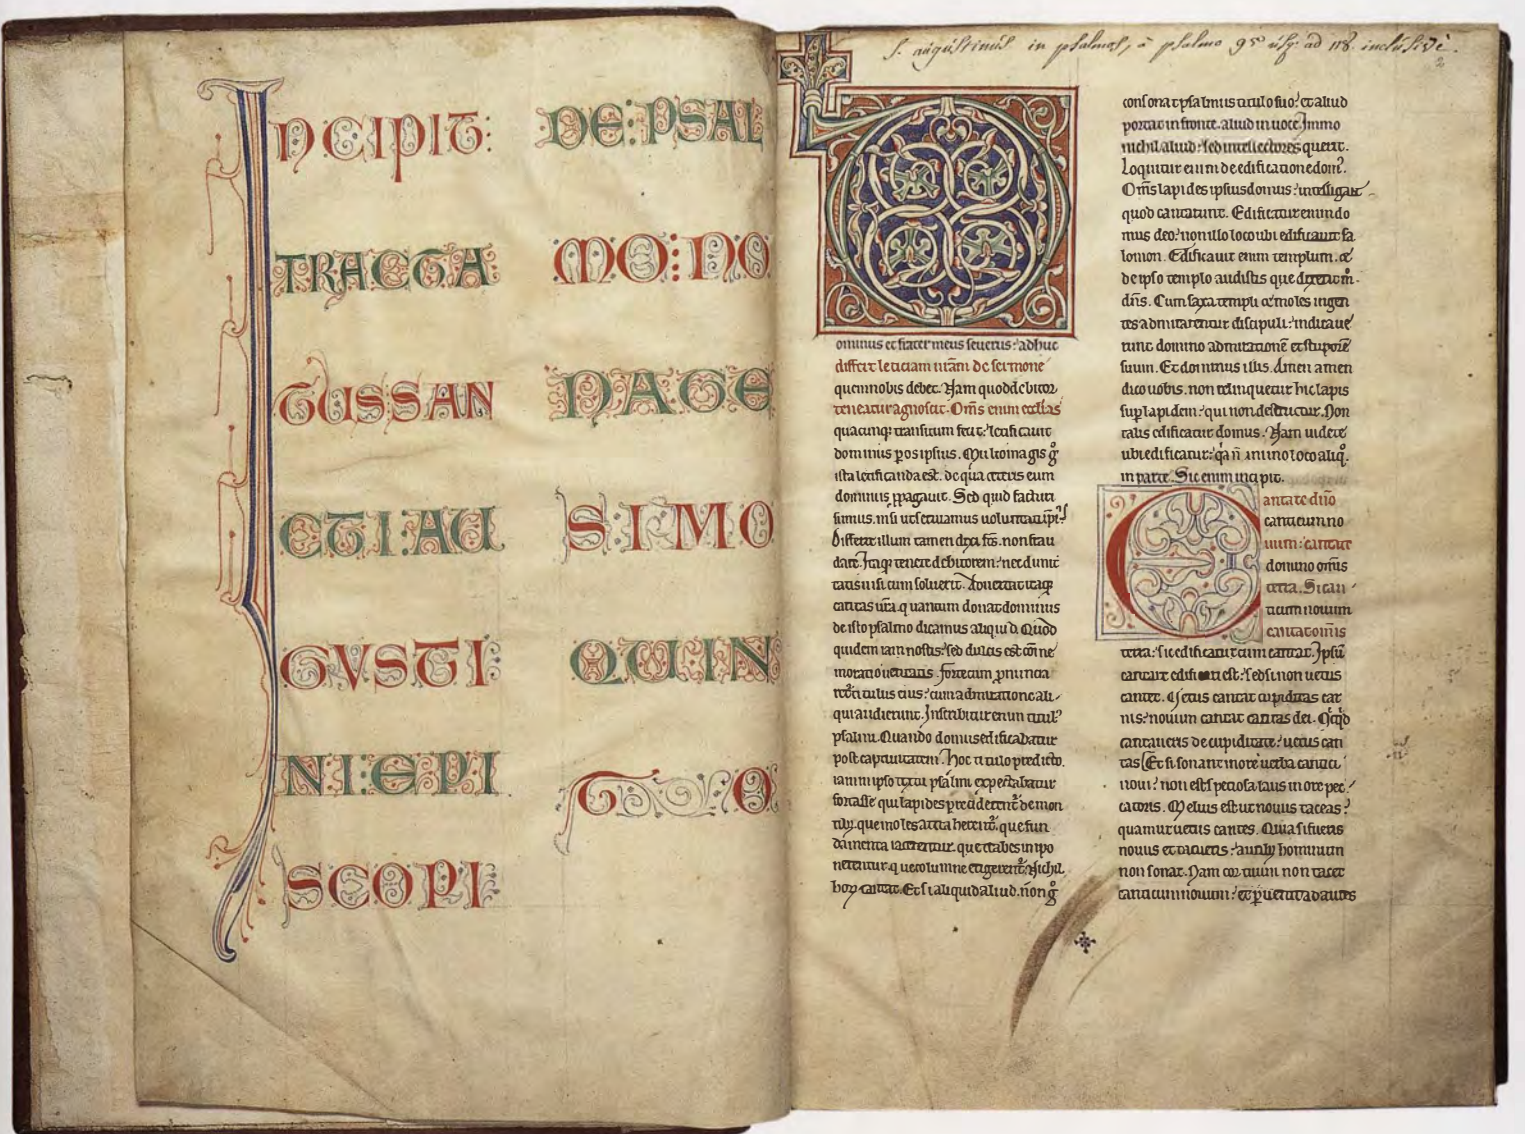 INCIPIT:
TRACTA
TUSSAN
CTI:AU
GVSTI
NI:EPI
SCOPI
DE:PSAL
MO:NO
NAGE
SIMO
QUIN
TO
S. augustinus in psalmos, à psalmo 95 usq; ad 118. inclusivè.
2
Dominus et frater meus seuerus: adhuc
differt leticiam nr̄am de sermone
quem nobis debet. Nam quod debitor
teneatur agnoscit. Om̄s enim eccl̄as
quacūq; transitum fecit: letificauit
dominus per os ipsius. Multo magis g̊
ista letificanda est. de qua ceteris eum
dominus ppagauit. Sed quid facturi
sumus. nisi ut seruamus uoluntati ipsi?
Differre illum tamen dixi frs̄. non frau
dare. Itaq; tenete debitorem: nec dimit
tatis nisi cum soluerit. Aduertat itaq;
caritas ur̄a. quantum donat dominus
de isto psalmo dicamus aliquid. Quod
quidem iam nostis: sed dulcis est cōme
moratio ueritatis. Forte cum pnuncia
titulus eius: cum admiratione ali-
qui audierunt. Inscribitur enim titul'
psalmi. Quando domus edificabatur
post captiuitatem. Hoc titulo predicto.
iam in ipso textu psalmi expectabatur
fortasse qui lapides preciderent de mon
tib; que moles que fun
damenta iacerentur. que trabes inpo
nerentur. que columne erigerent'. Nichil
hoȝ cantat. Et si aliquid aliud. non g̊
consonat psalmus titulo suo: et aliud
portat in fronte. aliud in uoce. Immo
nichil aliud: sed intellectores querit.
Loquitur enim de edificatione dom'.
Om̄s lapides ipsius domus: intelligant
quod cantarunt. Edificatur enim do
mus deo: non illo loco ubi edificauit sa
lomon. Edificauit enim templum. et
de ipso templo audistis que
dn̄s. Cum saxa templi et moles ingen
tes admirarentur discipuli: indicaue
runt domino admiratione et stupore
suum. Et dominus illis. Amen amen
dico uobis. non relinquetur hic lapis
sup lapidem: qui non destruatur. Non
talis edificatur domus. Nam uidete
ubi edificatur: qa n̄ in uno loco aliq̊.
in parte. Sic enim incipit.
Cantate dn̄o
canticum no
uum: cantate
domino omnis
terra. Si can-
ticum nouum
cantat om̄is
terra: sic edificatur cum cantat. Ipsum
cantare edificari est: sed si non uetus
cantet. Vetus cantat cupiditas car
nis: nouum cantat caritas dei. Qicq̊d
cantaueris de cupiditate: uetus can
tas Et si sonant in ore uerba cantici
noui: non est speciosa laus in ore pec-
catoris. Melius est ut nouus taceas:
quam ut uetus cantes. Quia si fueris
nouus et tacueris: aurib; hominum
non sonat. Nam cor tuum non tacet
canticum nouum: et puenit ad aures